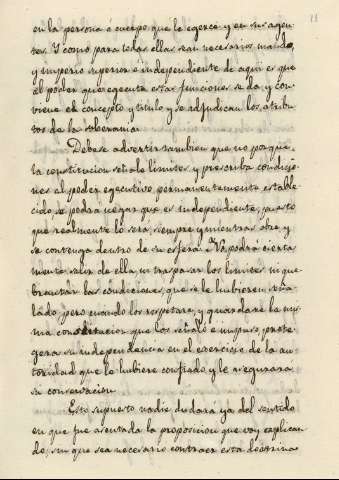 11
en la persona ó cuerpo que le egerce y en sus agen-
tes. Y como para todas ellas sean necesarios mando,
y imperio superior é independiente de aqui es que
el poder que egecuta estas funciones se da y con-
viene el concepto y titulo y se adjudican los atribu-
tos de la soberania.
Debese advertir tambien que no porque
la constitucion señale limites y prescriba condicio-
nes al poder egecutivo, permanentemente estable-
cido se podra negar que es independiente, puesto
que realmente lo sera, siempre y mientras obre y
se contenga dentro de su esfera. No podra cierta
mente salir de ella, ni traspasar los limites ni que
brantar las condiciones, que se le hubieren seña-
lado, pero cuando los respetare, y guardare la mis-
ma constitucion que los señaló e impuso, prote-
gera su independencia en el exercicio de la au-
toridad que le hubiere confiado y le asegurara
su conservacion.
Esto supuesto nadie dudara ya del sentido
en que fue asentada la proposicion que voy explican
do, sin que sea necesario contraer esta doctrina